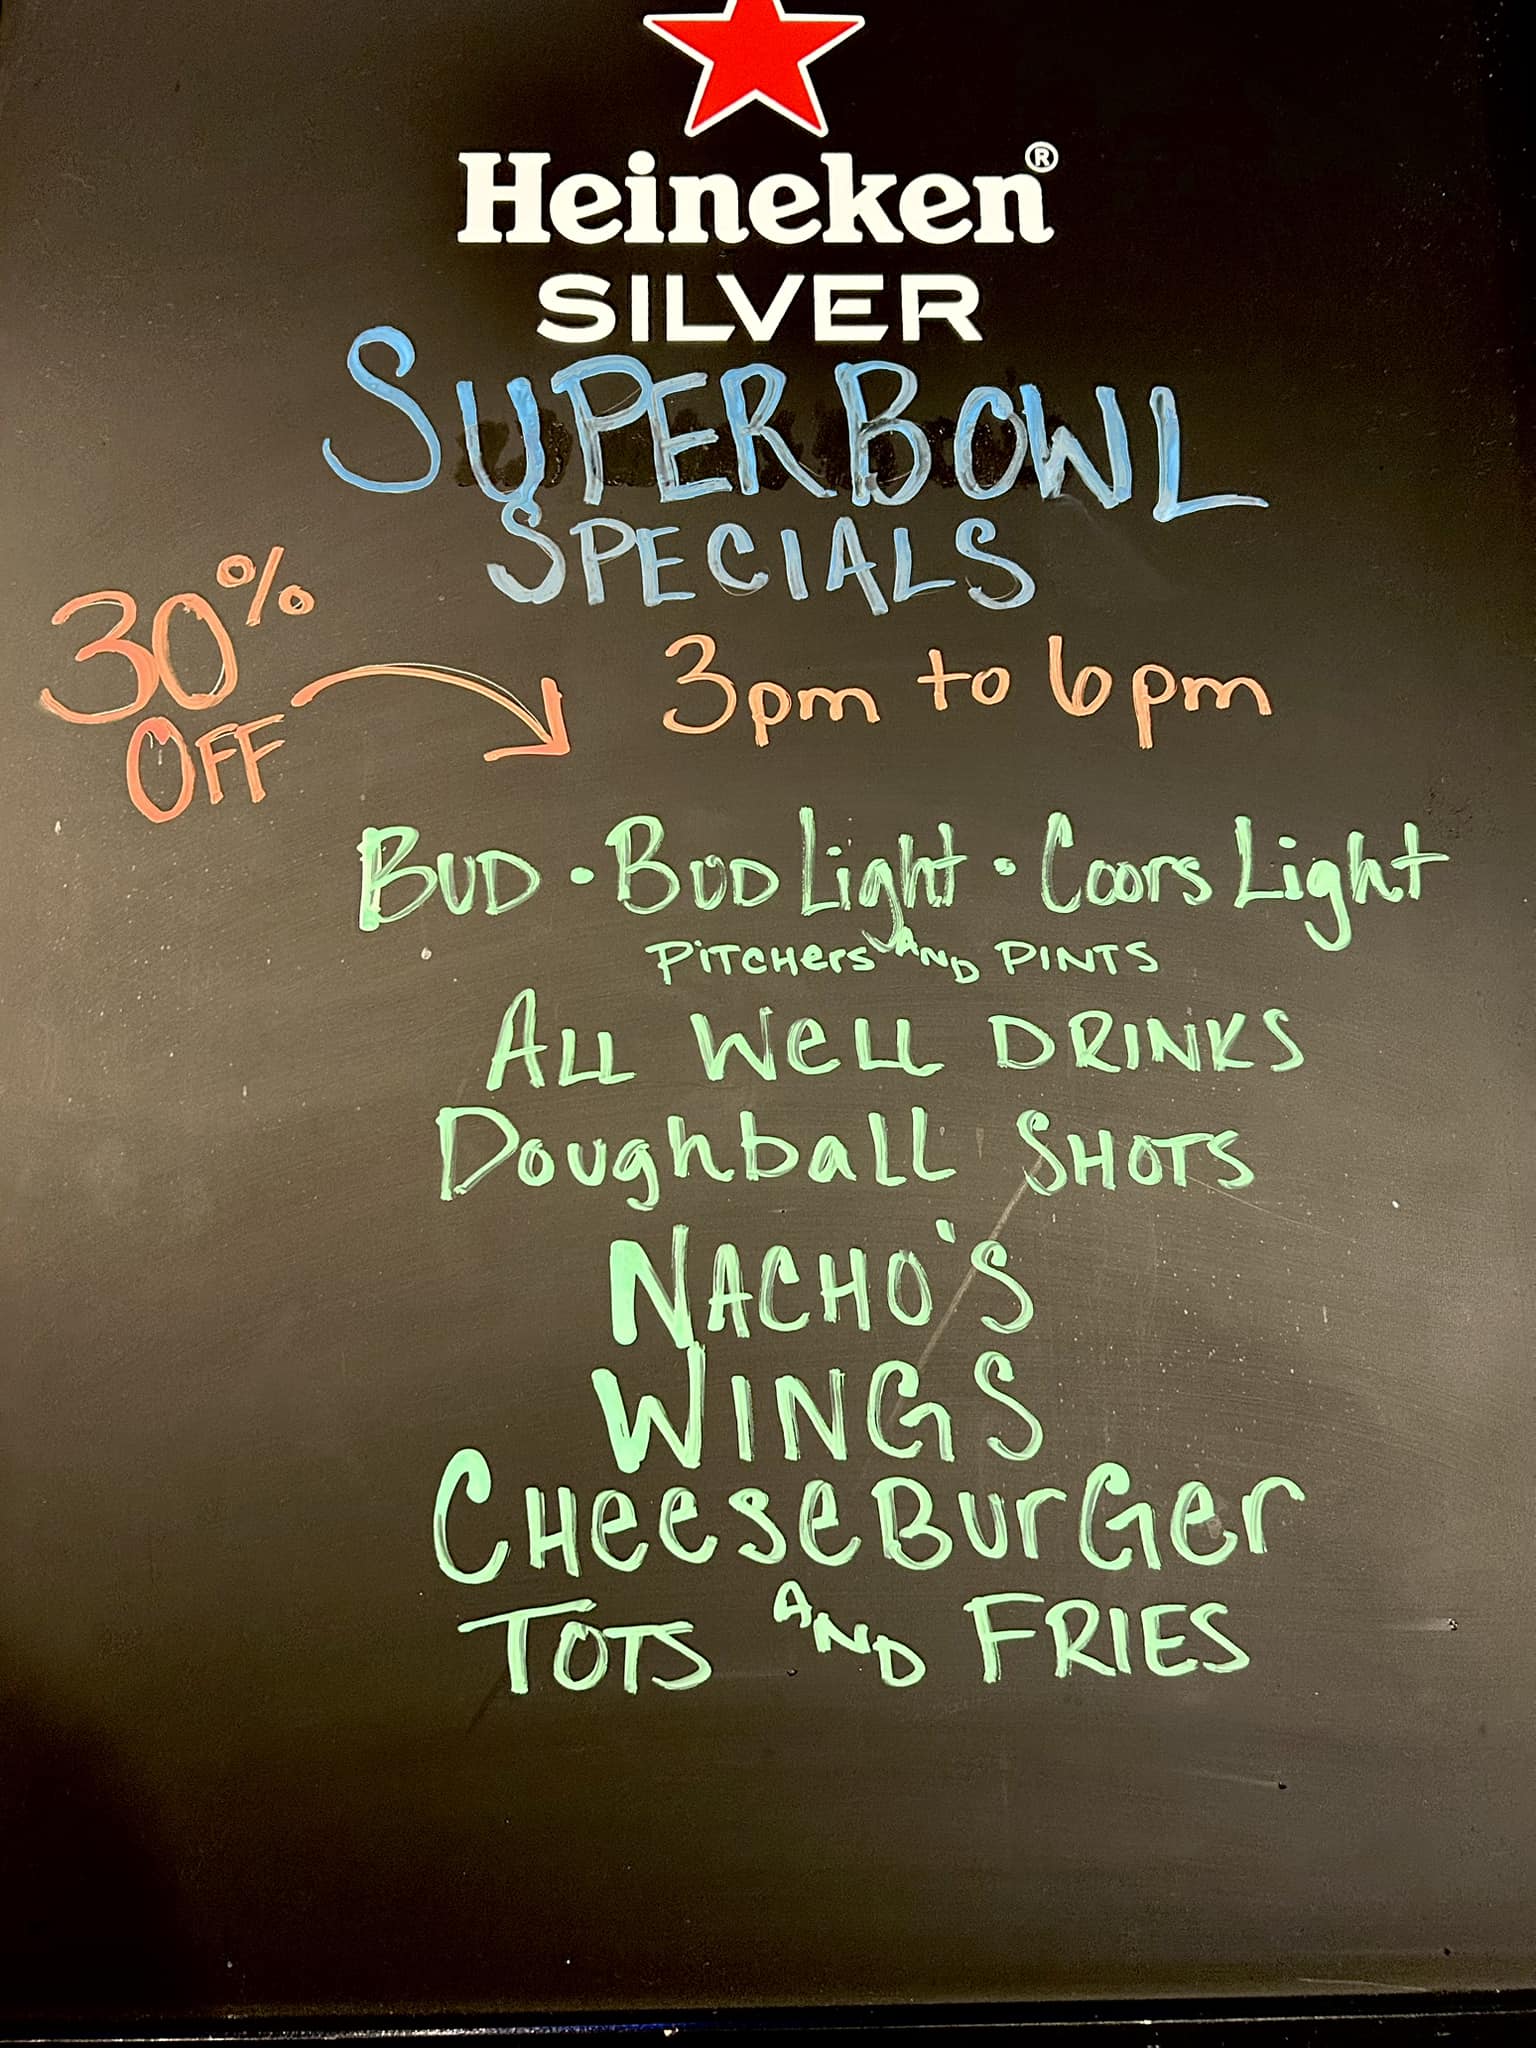 Heineken®
SILVER
SUPERBOWL
SPECIALS
30%
OFF
3pm to 6pm
BUD • BUD Light • Coors Light
PiTCHers AND PINTS
ALL WeLL DRINKS
Doughball SHOTS
NACHO'S
WINGS
CHeeseBurGer
TOTS AND FRIES